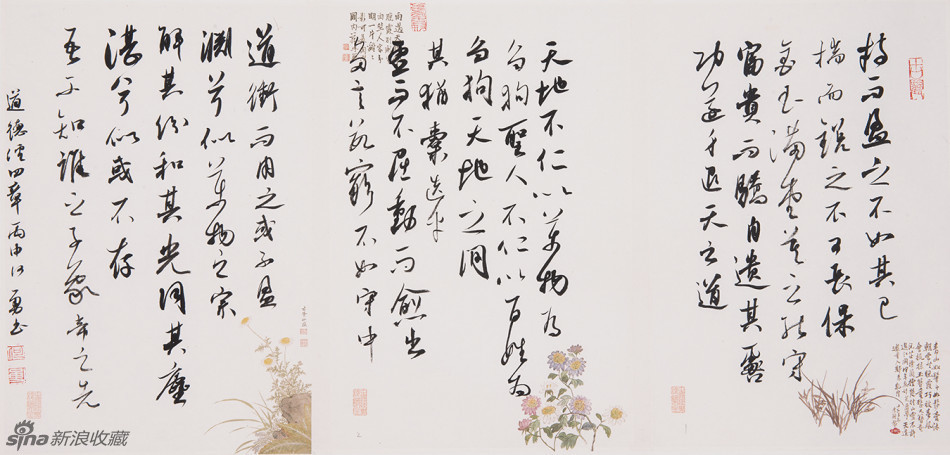 持而盈之不如其已
揣而銳之不可長保
金玉滿堂莫之能守
富貴而驕自遺其咎
功遂身退天之道
天地不仁以萬物為
芻狗聖人不仁以百姓為
芻狗天地之間
其猶橐乎
虛而不屈動而愈出
多言數窮不如守中
道衝而用之或不盈
淵兮似萬物之宗
解其份和其光同其塵
湛兮似或不存
吾不知誰之子象帝之先
道德經四章丙申勇書
sina新浪收藏